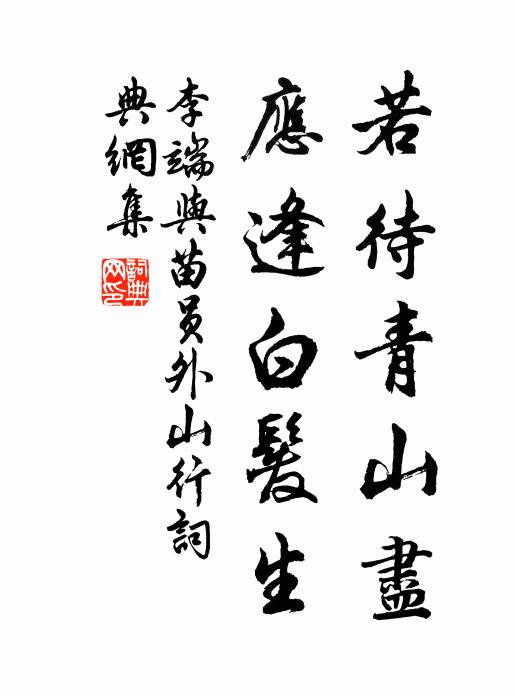 若待青山盡
應逢白髮生
李端與苗员外山行詞
典網集
詞典
网印